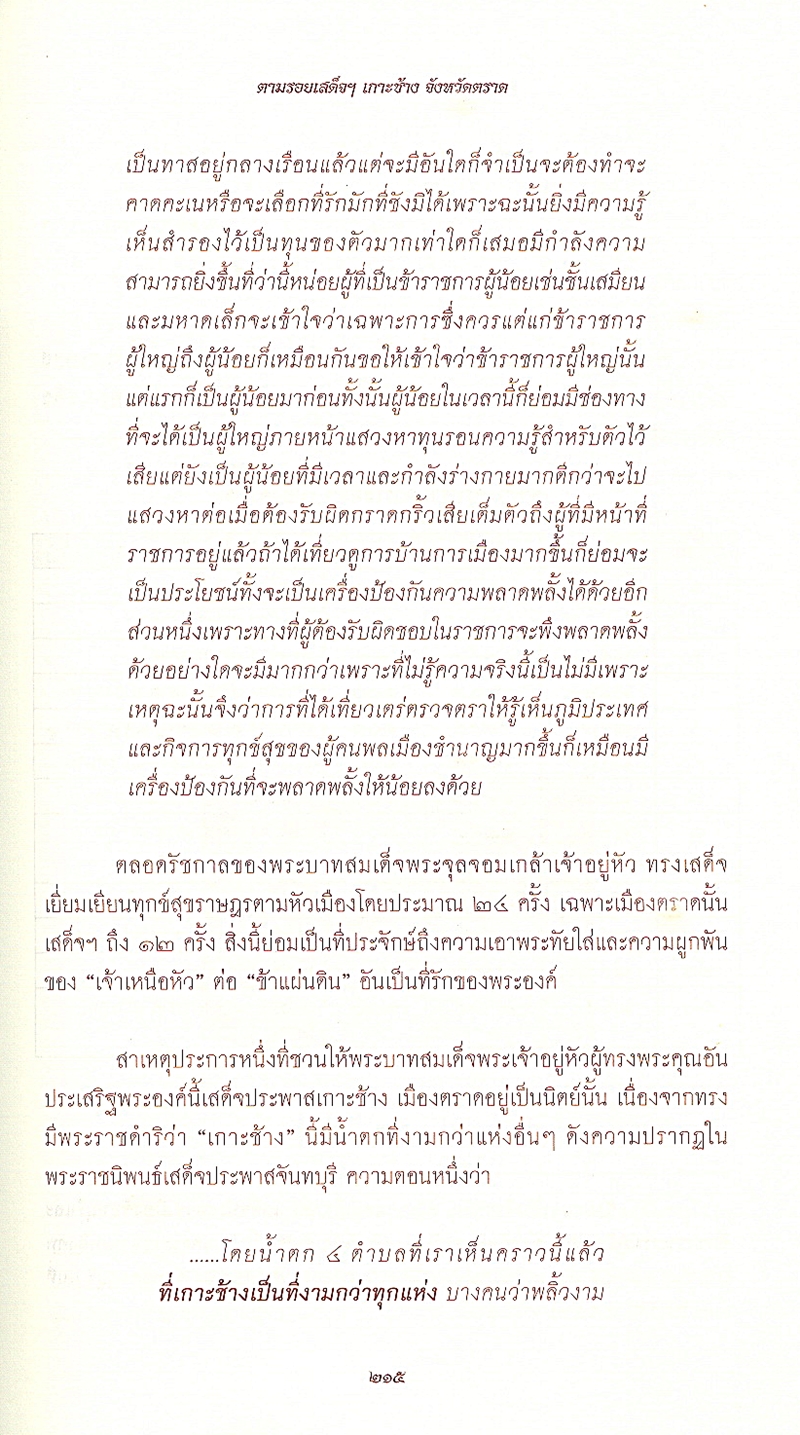 ตามรอยเสด็จฯ เกาะช้าง จังหวัดตราด
เป็นทาสอยู่กลางเรือนแล้วแต่จะมีอันใดก็จำเป็นจะต้องทำจะ
คาดคะเนหรือจะเลือกที่รักมักที่ชังมิได้เพราะฉะนั้นยิ่งมีความรู้
เห็นสำรองไว้เป็นทุนของตัวมากเท่าใดก็เสมอมีกำลังความ
สามารถยิ่งขึ้นที่ว่านี้หน่อยผู้ที่เป็นข้าราชการผู้น้อยเช่นชั้นเสมียน
และมหาดเล็กจะเข้าใจว่าเฉพาะการซึ่งควรแต่แก่ข้าราชการ
ผู้ใหญ่ถึงผู้น้อยก็เหมือนกันขอให้เข้าใจว่าข้าราชการผู้ใหญ่นั้น
แต่แรกก็เป็นผู้น้อยมาก่อนทั้งนั้นผู้น้อยในเวลานี้ก็ย่อมมีช่องทาง
ที่จะได้เป็นผู้ใหญ่ภายหน้าแสวงหาทุนรอนความรู้สำหรับตัวไว้
เสียแต่ยังเป็นผู้น้อยที่มีเวลาและกำลังร่างกายมากดีกว่าจะไป
แสวงหาต่อเมื่อต้องรับผิดกราดกริ้วเสียเต็มตัวถึงผู้ที่มีหน้าที่
ราชการอยู่แล้วถ้าได้เที่ยวดูการบ้านการเมืองมากขึ้นก็ย่อมจะ
เป็นประโยชน์ทั้งจะเป็นเครื่องป้องกันความพลาดพลั้งได้ด้วยอีก
ส่วนหนึ่งเพราะทางที่ผู้ต้องรับผิดชอบในราชการจะพึงพลาดพลั้ง
ด้วยอย่างใดจะมีมากกว่าเพราะที่ไม่รู้ความจริงนี้เป็นไม่มีเพราะ
เหตุฉะนั้นจึงว่าการที่ได้เที่ยวเตร่ตรวจตราให้รู้เห็นภูมิประเทศ
และกิจการทุกข์สุขของผู้คนพลเมืองชำนาญมากขึ้นก็เหมือนมี
เครื่องป้องกันที่จะพลาดพลั้งให้น้อยลงด้วย
ตลอดรัชกาลของพระบาทสมเด็จพระจุลจอมเกล้าเจ้าอยู่หัว ทรงเสด็จ
เยี่ยมเยียนทุกข์สุขราษฎรตามหัวเมืองโดยประมาณ ๒๔ ครั้ง เฉพาะเมืองตราดนั้น
เสด็จฯ ถึง ๑๒ ครั้ง สิ่งนี้ย่อมเป็นที่ประจักษ์ถึงความเอาพระทัยใส่และความผูกพัน
ของ “เจ้าเหนือหัว” ต่อ “ข้าแผ่นดิน” อันเป็นที่รักของพระองค์
สาเหตุประการหนึ่งที่ชวนให้พระบาทสมเด็จพระเจ้าอยู่หัวผู้ทรงพระคุณอัน
ประเสริฐพระองค์นี้เสด็จประพาสเกาะช้าง เมืองตราดอยู่เป็นนิตย์นั้น เนื่องจากทรง
มีพระราชดำริว่า “เกาะช้าง” นี้มีน้ำตกที่งามกว่าแห่งอื่นๆ ดังความปรากฏใน
พระราชนิพนธ์เสด็จประพาสจันทบุรี ความตอนหนึ่งว่า
......โดยน้ำตก ๔ ตำบลที่เราเห็นคราวนี้แล้ว
ที่เกาะช้างเป็นที่งามกว่าทุกแห่ง บางคนว่าพลิ้วงาม
๒๑๕